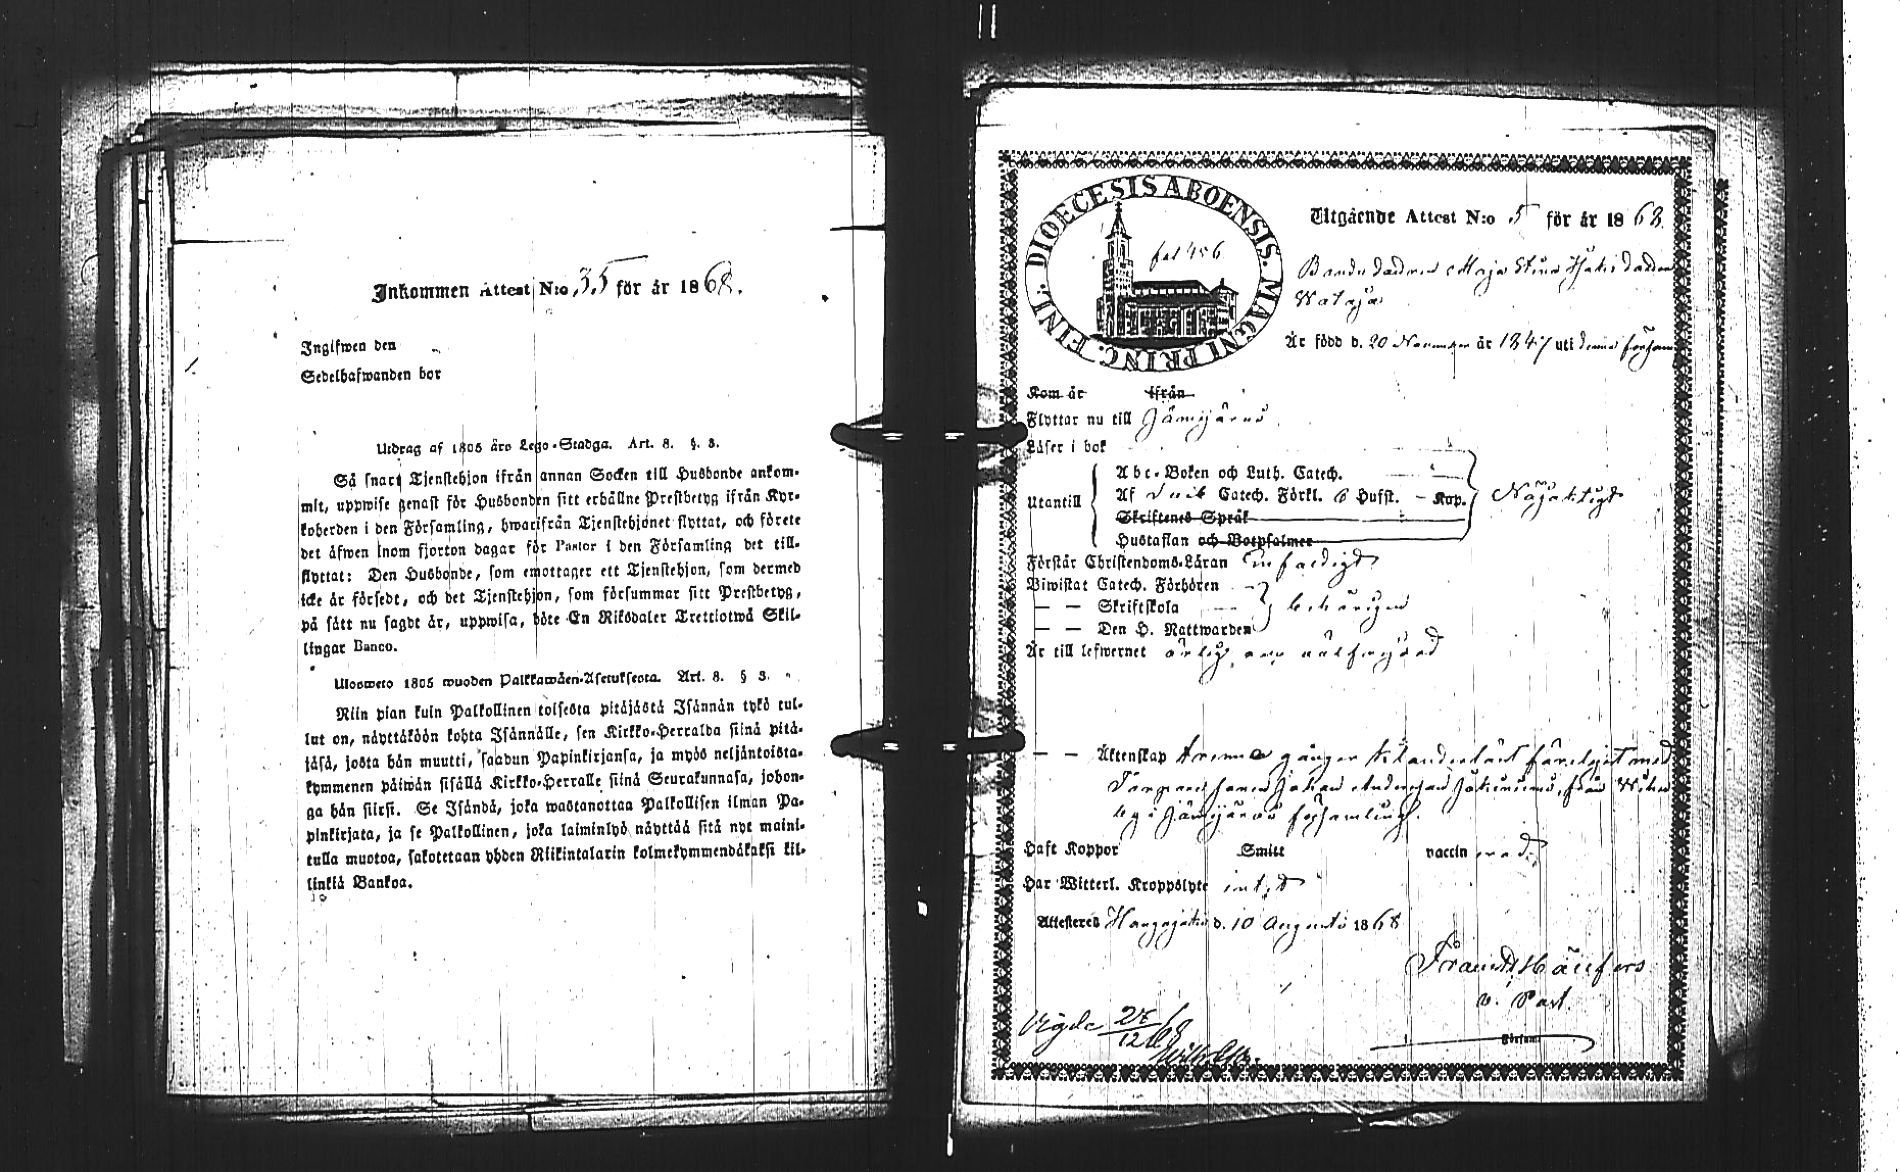 Inkommen Attest N:o 35 för år 1868.
Ingifwen den
Sedelhafwanden bor
Utdrag af 1805 års Lego-Stadga. Art. 8. §. 3.
Så snart Tjenstehjon ifrån annan Socken till Husbonde ankom-
mit, uppwise genast för Husbonden sitt erhållne Prestbetyg ifrån Kyr-
koherden i den Församling, hwarifrån Tjenstehjonet flyttat, och förete
det äfwen inom fjorton dagar för Pastor i den Församling det till-
flyttat: Den Husbonde, som emottager ett Tjenstehjon, som dermed
icke är försedt, och det Tjenstehjon, som försummar sitt Prestbetyg,
på sätt nu sagdt är, uppwisa, böte En Riksdaler Trettiotwå Skil-
lingar Banco.
Ulosweto 1805 wuoden Palkkawäen-Asetuksesta. Art. 8. § 3.
Niin pian kuin Palkollinen toisesta pitäjästä Isännän tykö tul-
lut on, näyttäköön kohta Isännälle, sen Kirkko-Herralda siinä pitä-
jäsä, josta hän muutti, saadun Papinkirjansa, ja myös neljäntoista-
kymmenen päiwän sisällä Kirkko-Herralle siinä Seurakunnasa, johon-
ga hän siirsi. Se Isändä, joka wastanottaa Palkollisen ilman Pa-
pinkirjata, ja se Palkollinen, joka laiminlyö näyttää sitä nyt maini-
tulla muotoa, sakotetaan yhden Riikintalarin kolmekymmendäkaksi kil-
linkiä Bankoa.
DIOECESIS ABOENSIS. MAGNI PRINC. FINL.
fol 456
Utgående Attest N:o 5 för år 1868.
Bondedottren Maja Stina
Wataja
Är född d. 20 November år 1847 uti denna försam
Kom år ifrån
Flyttar nu till Jämijärvi
Läser i bok
Abc-Boken och Luth. Catech.
Utantill Af Catech. Förkl. 6 Hufst. - Kap. Nöjaktigt
Skriftenes Språk
Hustaflan och Botpsalmer
Förstår Christendoms-Läran Enfaldigt
Biwistat Catech. Förhören
— — Skriftskola behörigen
— — Den H. Nattwarden
Är till lefwernet ärlig och välfrejdad
— — Äktenskap trenne gånger lyst med
Johan Andersson från
i Jämijärvi församling.
Haft Koppor Smitt vaccin med
Har Witterl. Kroppslyte intet
Attesteres d. 10 Augusti 1868
v. Past.
Församl.
Vigde 26/12 68